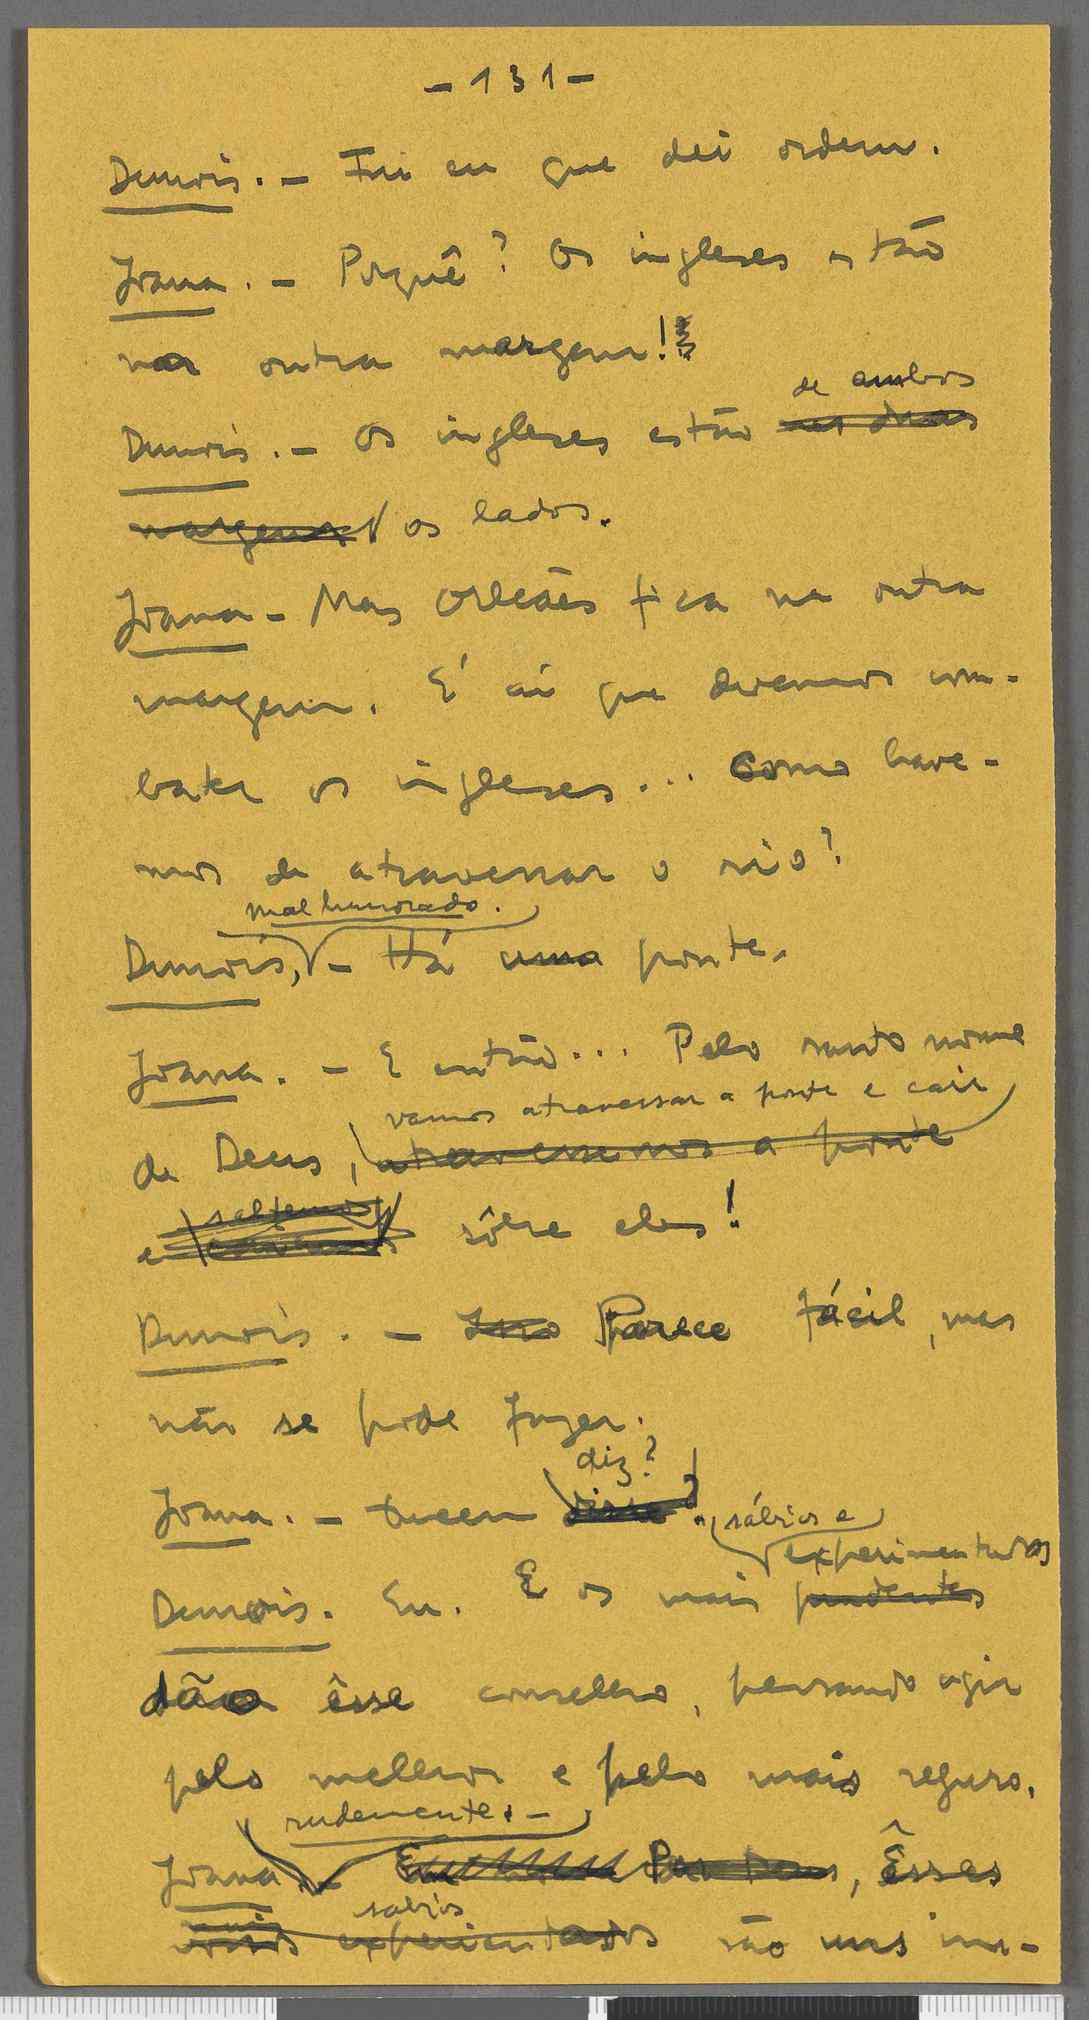 - 131 -
Dunois. - Fui eu que dei ordem.
Joana. - Porquê? Os ingleses estão
na outra margem!
de ambos
Dunois. - Os ingleses estão nas duas
margens os lados.
Joana - Mas Orleães fica na outra
margem. É aí que devemos com-
bater os ingleses... Como have-
mos de atravessar o rio?
mal humorado.
Dunois, - Há uma ponte.
Joana. - E então... Pelo santo nome
vamos atravessar a ponte e cair
de Deus, atravessemos a ponte
saltemos
e caiamos sôbre eles!
Dunois. - Isso Parece fácil, mas
não se pode fazer.
diz?
Joana. - Quem disse?
sábios e
experimentados
Dunois. Eu. E os mais prudentes
dão êsse conselho, pensando agir
pelo melhor e pelo mais seguro.
rudemente. -
Joana, - Por Deus, Êsses
sabios
experientados são uns im-